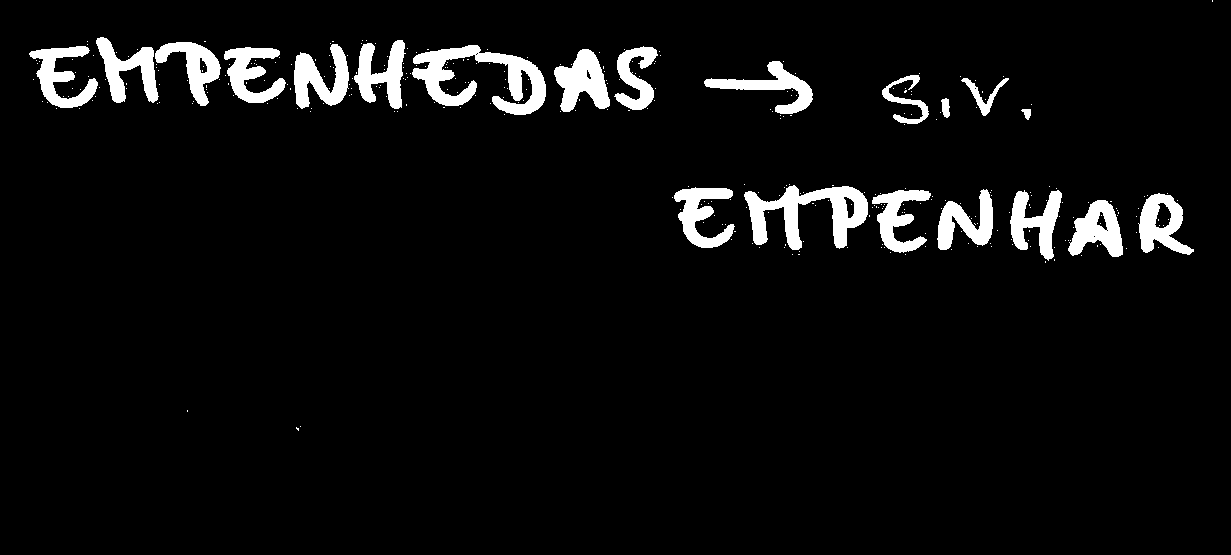 EMPENHEDAS → s.v.
EMPENHAR